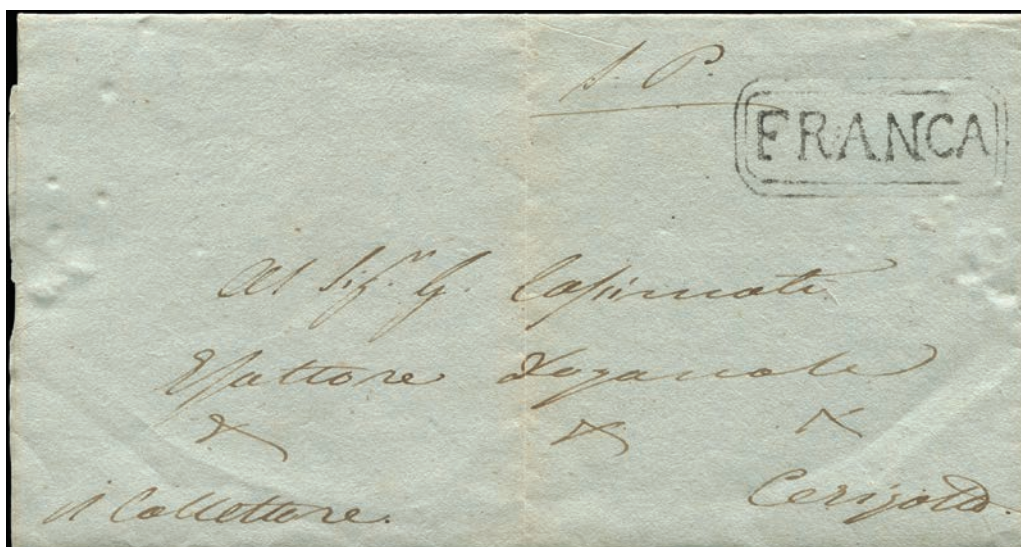 S. P.
FRANCA
Al Sig.r G. Casimati
Esattore Doganale
Il Collettore.
Cerigotto.